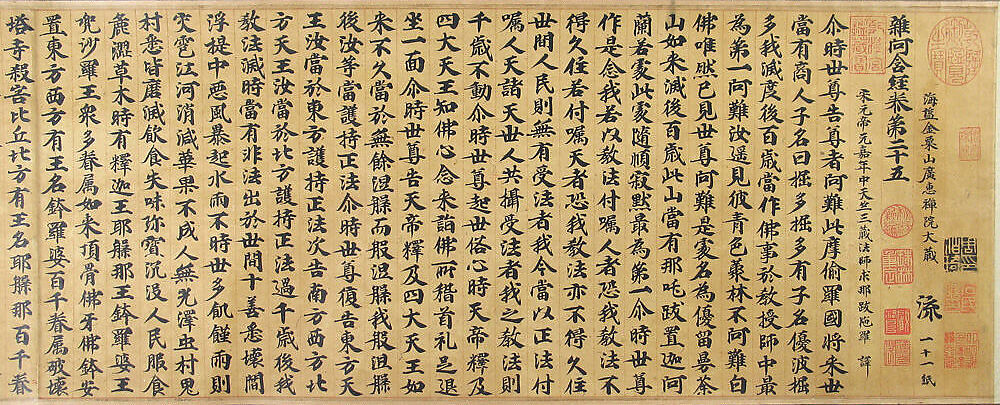 海鹽金粟山廣惠禪院大藏 流 一十一紙
雜阿含經卷第二十五
宋元帝元嘉年中天竺三藏法師求那跋陀羅 譯
尒時世尊告尊者阿難此摩偷羅國將来世
當有商人子名曰掘多掘多有子名優波掘
多我滅度後百歲當作佛事於教授師中最
為第一阿難汝遥見彼青色藂林不阿難白
佛唯然已見世尊阿難是處名為優留曼荼
山如来滅後百歲此山當有那吒跋置迦阿
蘭若處此處隨順寂默最為第一尒時世尊
作是念我若以教法付嘱人者恐我教法不
得久住若付嘱天者恐我教法亦不得久住
世間人民則無有受法者我今當以正法付
嘱人天諸天世人共攝受法者我之教法則
千歲不動尒時世尊起世俗心時天帝釋及
四大天王知佛心念来詣佛所稽首礼足退
坐一面尒時世尊告天帝釋及四大天王如
来不久當於無餘涅槃而般涅槃我般涅槃
後汝等當護持正法尒時世尊復告東方天
王汝當於東方護持正法次告南方西方北
方天王汝當於北方護持正法過千歲後我
教法滅時當有非法出於世間十善悉壞閻
浮提中惡風暴起水雨不時世多飢饉雨則
灾雹江河消減華果不成人無光澤虫村鬼
村悉皆磨滅飲食失味珎寳沉没人民服食
麁澀草木時有釋迦王耶槃那王鉢羅婆王
兜沙羅王衆多眷属如来頂骨佛牙佛鉢安
置東方西方有王名鉢羅婆百千眷属破壞
塔寺殺害比丘北方有王名耶槃那百千眷